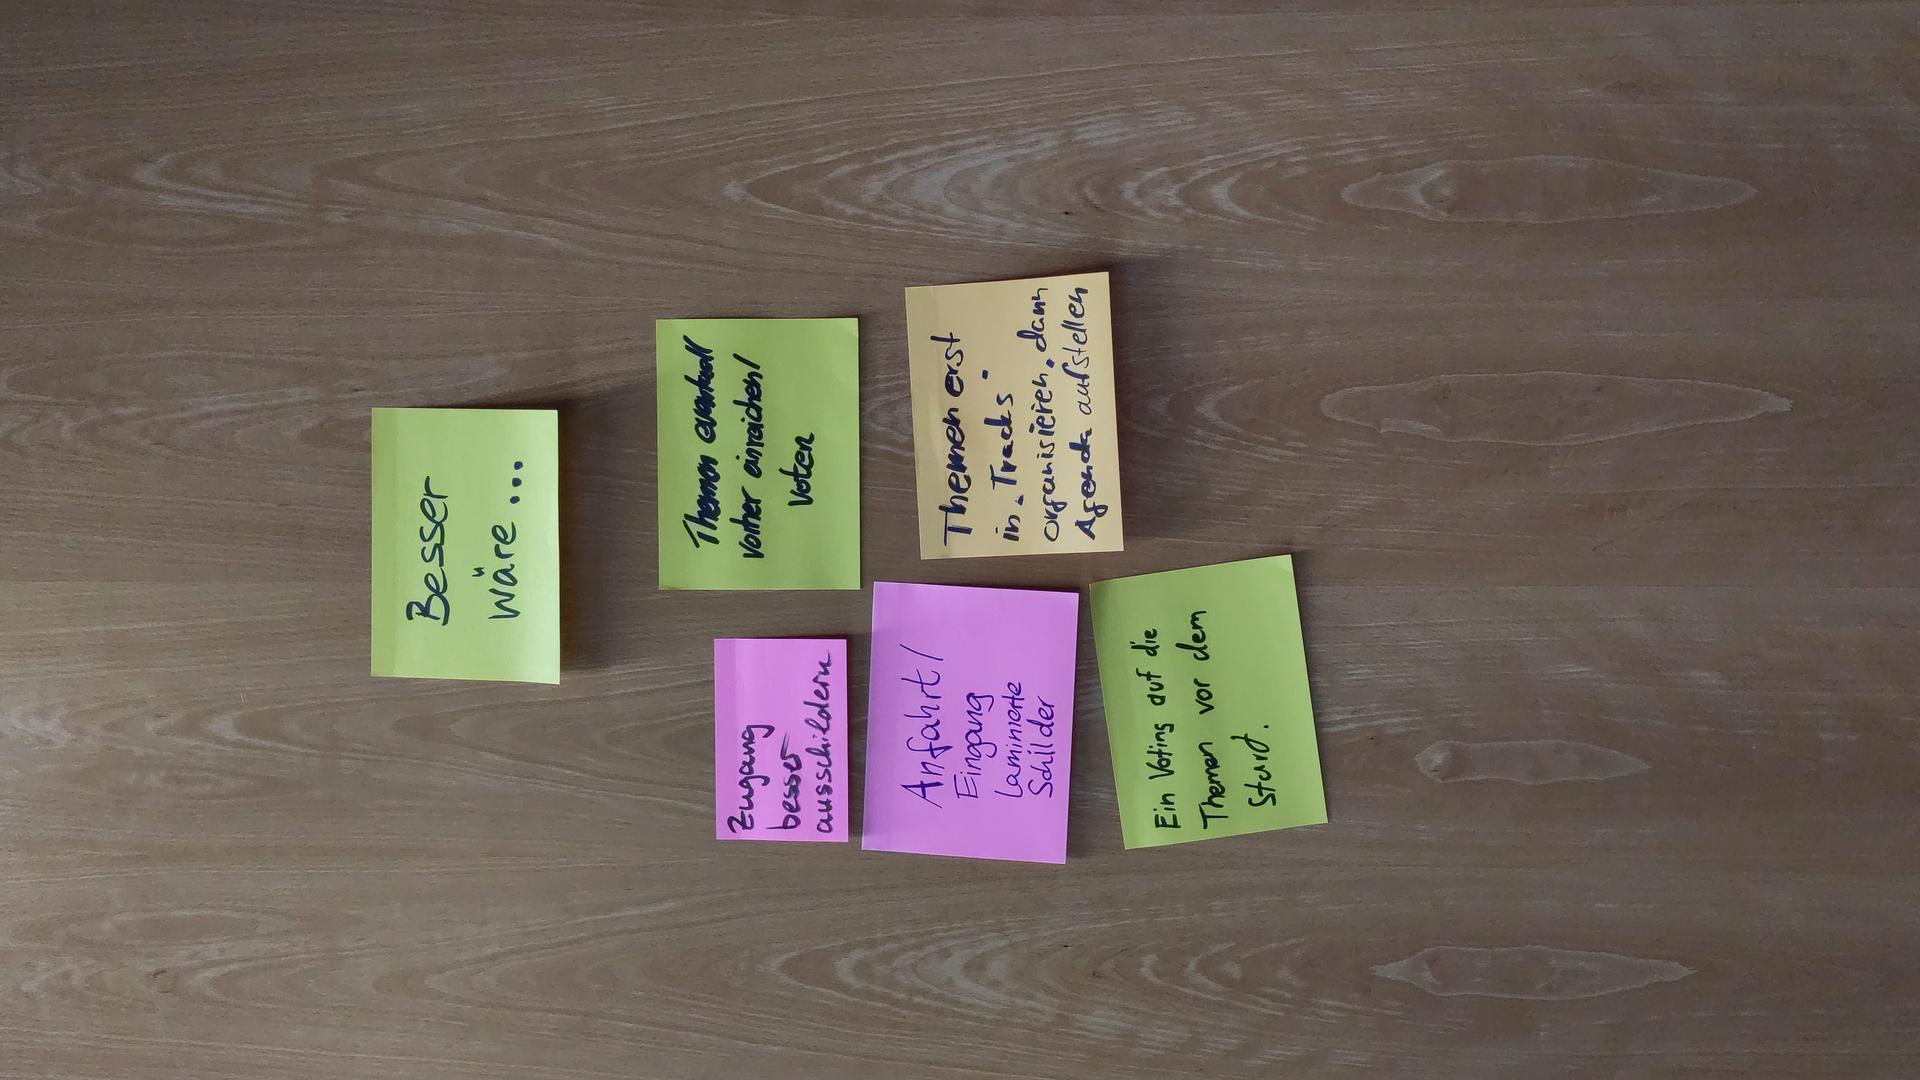 Besser
wäre...
Themen eventuell
vorher einreichen/
voten
Zugang
besser
ausschildern
Anfahrt/
Eingang
laminierte
Schilder
Themen erst
in Tracks
organisieren, dann
Agenda aufstellen
Ein Voting auf die
Themen vor dem
Start.